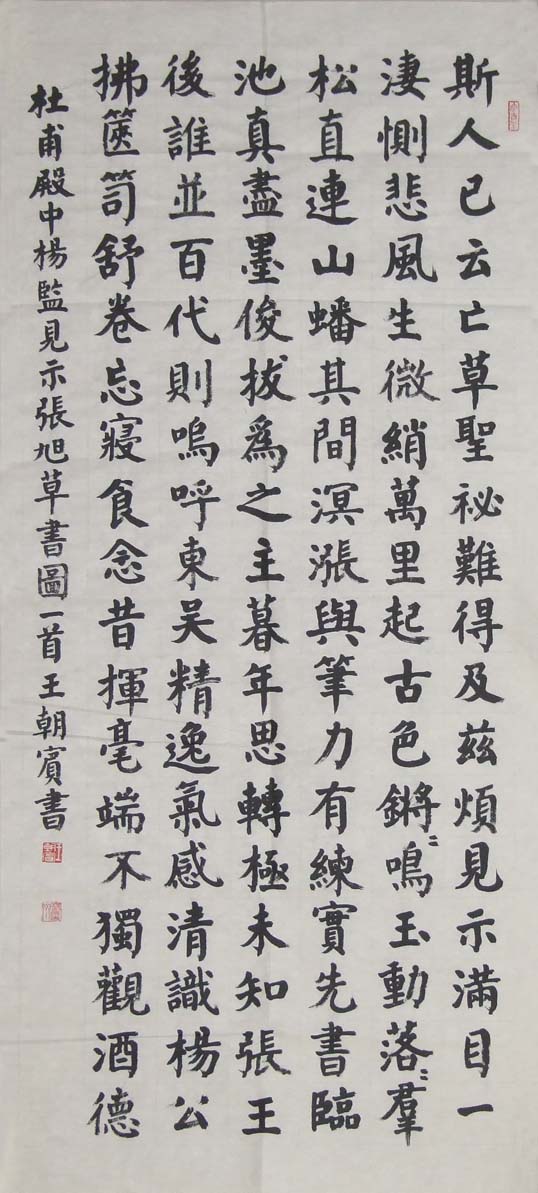 斯人已云亡草聖祕難得及茲煩見示滿目一
淒惻悲風生微綃萬里起古色鏘〻鳴玉動落〻羣
松直連山蟠其間溟漲與筆力有練實先書臨
池真盡墨俊拔爲之主暮年思轉極未知張王
後誰並百代則嗚呼東吴精逸氣感清識楊公
拂篋笥舒卷忘寢食念昔揮毫端不獨觀酒德
杜甫殿中楊監見示張旭草書圖一首王朝賓書